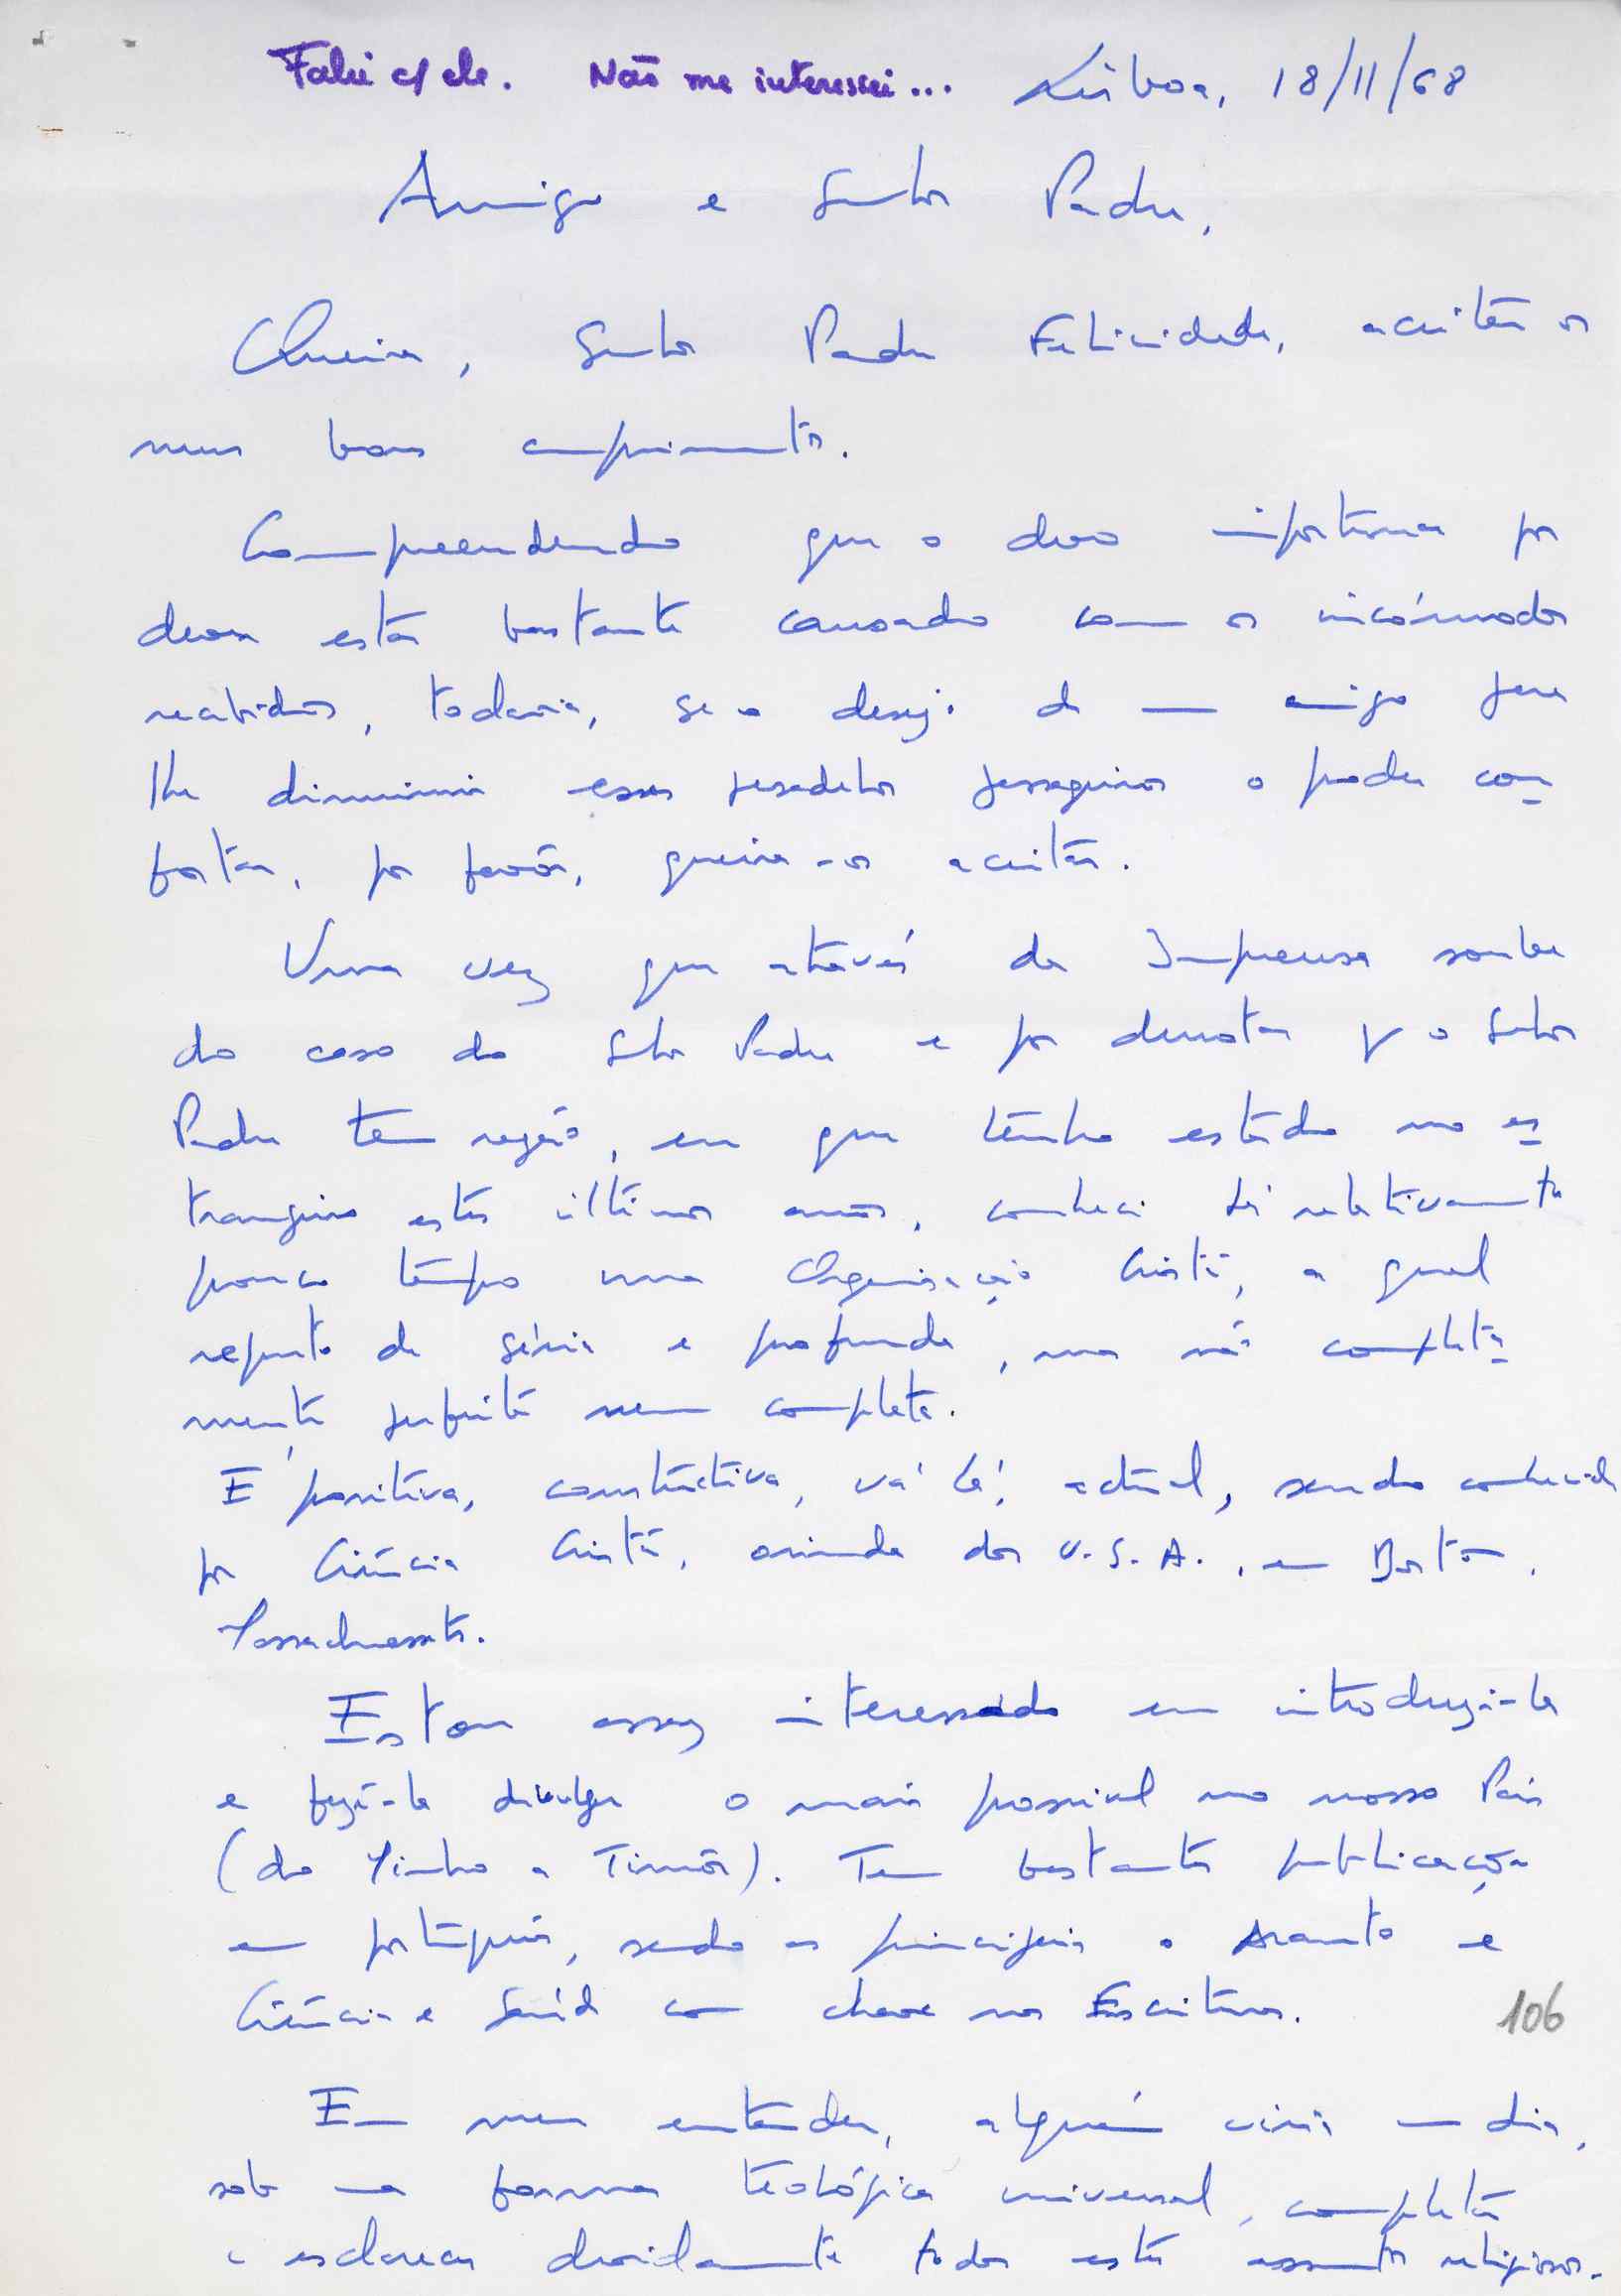 Falei c/ ele. Não me interessei... Lisboa, 18/11/68
Amigo e Senhor Padre,
Queira, Senhor Padre Felicidade, aceitar os
meus bons cumprimentos.
Compreendendo que o devo importunar por
estar bastante cansado com os incómodos
recebidos, todavia, se o desejo de um amigo para
lhe diminuir esses pesadelos passageiros o poder con-
fortar, por favôr, queira-os aceitar.
Uma vez que através da Imprensa soube
do caso do Senhor Padre e por denotar q/ o Senhor
Padre tem razão, eu que tenho estado no es-
trangeiro estes últimos anos, conheci há relativamente
pouco tempo uma Organização Cristã, a qual
reputo de séria e profunda, mas não completa-
mente perfeita nem completa.
É positiva, constructiva, vá lá, actual, sendo conhecida
por Ciência Cristã, oriunda dos U.S.A., em Boston,
Massachussets.
Estou assaz interessado em introduzi-la
e fazê-la divulgar o mais possível no nosso País
(do Minho a Timôr). Tem bastantes publicações
em português, sendo as principais o Arauto e
Ciência e Saúde com chave nas Escrituras.
106
Em meu entender, alguém virá um dia,
sob uma forma teológica universal, completar
e esclarecer devidamente todos estes assuntos religiosos.